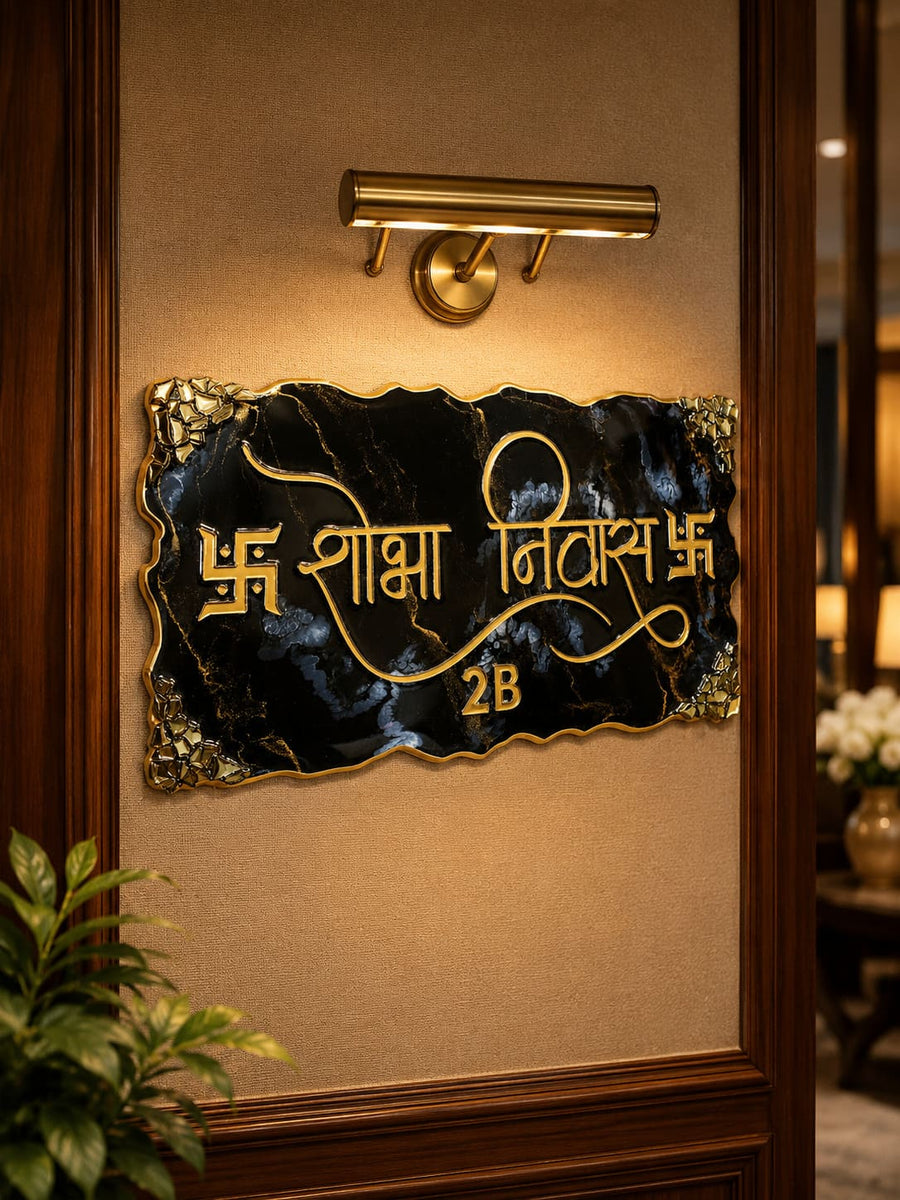 卐 शोभा निवास 卐
2B